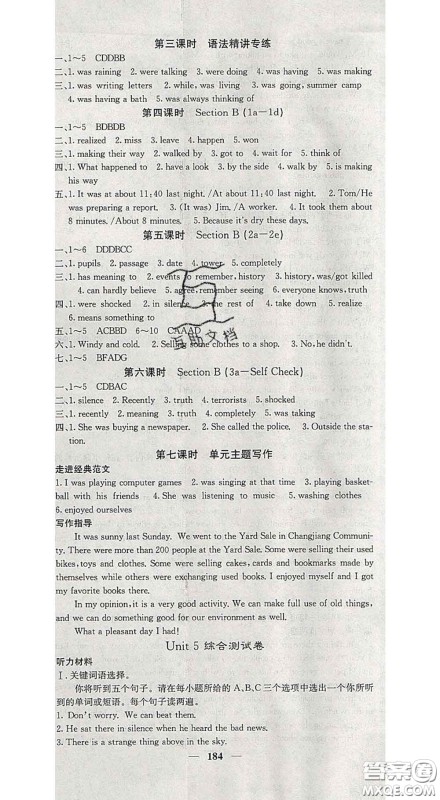 第三课时 语法精讲专练
一、1～5 CDDBB
二、1. was raining 2. were talking 3. were doing 4. was having 5. was making
三、1. was writing letters 2. was having 3. was going, summer camp
4. was having a bath 5. was always thinking of
第四课时 Section B (1a—1d)
一、1～5 BDBDB
二、1. realized 2. miss 3. leave 4. happen 5. won
三、1. making their way 2. walked by 3. got to 4. wait for 5. think of
四、1. What happened to 2. have a look 3. by the side 4. walk by 5. is making
his way
五、1. It was at about 11:40 last night. /At about 11:40 last night. 2. Tom/He
was preparing a report. 3. (It was) Jim. /A worker. 4. It took them about
8 minutes. /About 8 minutes. 5. Because it's dry these days.
第五课时 Section B (2a—2e)
一、1～6 DDDBCC
二、1. pupils 2. passage 3. date 4. tower 5. completely
三、1. has meaning to 2. events to remember, history 3. history, was/got killed
4. can hardly believe 5. agree, remember seeing 6. everyone knows, truth
四、1. were shocked 2. in silence 3. the rest of 4. take down 5. realize
6. means something to
五、1～5 ACBBD 6～10 CAAAD
六、1. Windy and cold. 2. Falling trees. 3. No, he didn't.
七、1～5 BFADG
第六课时 Section B (3a—Self Check)
一、1～5 CDBAC
二、1. silence 2. Recently 3. truth 4. terrorists 5. shocked
三、1. recently 2. meaning 3. truth 4. completely 5. was taking
四、1. She was buying a newspaper. 2. She called the police. 3. Outside the sta-
tion.
第七课时 单元主题写作
走进经典范文
1. I was playing computer games 2. was singing at that time 3. playing basket-
ball with his friends 4. She was listening to music 5. washing clothes
6. enjoyed ourselves
写作指导
It was sunny last Sunday. We went to the Yard Sale in Changjiang Communi-
ty. There were more than 200 people at the Yard Sale. Some were selling their used
bikes, toys and clothes. Some were selling cakes, cards and bookmarks made by
themselves while others were exchanging used books. I enjoyed myself and I got
my favorite books there.
In my opinion, it is a very good activity. We can make full use of old things,
and we can do something good for our environment as well.
What a pleasant day I had!
Unit 5 综合测试卷
听力材料
Ⅰ. 关键词语选择。
你将听到五个句子。请在每小题所给的 A、B、C 三个选项中选出一个你所听
到的单词或短语。每个句子读两遍。
1. Don't worry. We can beat them.
2. He sat there in silence when he heard the bad news.
3. There is a strange thing above in the sky.
184
互助文档
答案圈
MXQE.COM